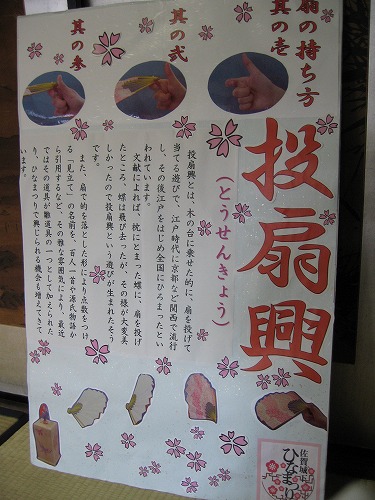 扇の持ち方
其の壱
其の弐
其の参
投扇興
(とうせんきょう)
投扇興とは、木の台に乗せた的に、扇を投げて
当てる遊びで、江戸時代に京都など関西で流行
し、その後江戸をはじめ全国にひろまったとい
われています。
文献によれば、枕にとまった蝶に、扇を投げ
たところ、蝶は飛び去ったが、その様が大変美
しかったので投扇興という遊びが生まれたそう
です。
また、扇が的を落とした形により点数をつけ
る「見立て」の名前を、百人一首や源氏物語か
ら引用するなど、その雅な雰囲気により、最近
ではその道具が雛道具の一つとして加えられた
り、ひなまつりで興じられる機会も増えてきて
います。
佐賀城下
ひなまつり